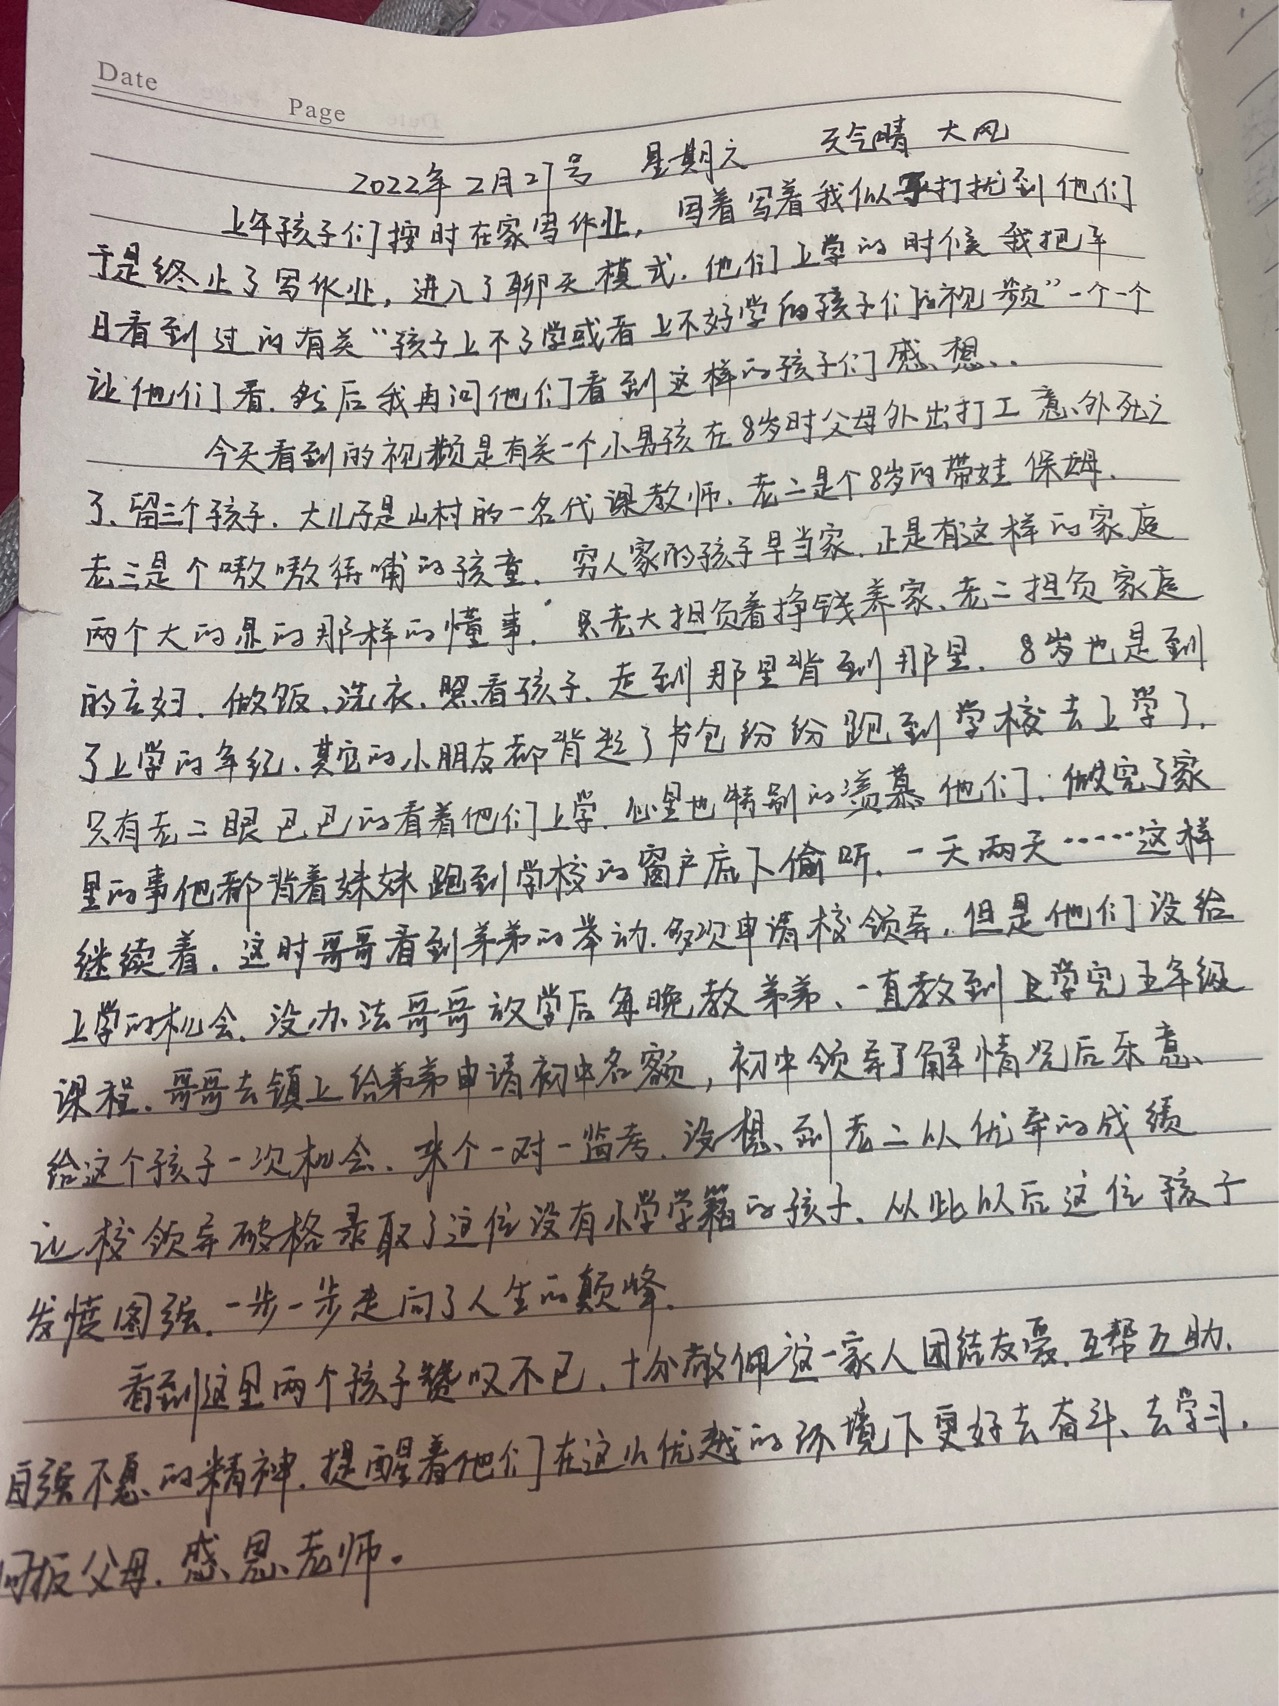 Date
Page
2022年2月27号 星期六 天气晴 大风
上午孩子们按时在家写作业，写着写着我似乎打扰到他们
于是终止了写作业，进入了聊天模式．他们上学的时候我把平
日看到过的有关“孩子上不了学或者上不好学的孩子们的视频”一个一个
让他们看．然后我再问他们看到这样的孩子们感想．．
今天看到的视频是有关一个小男孩在8岁时父母外出打工意外死亡
了、留三个孩子．大儿子是山村的一名代课教师．老二是个8岁的带娃保姆．
老三是个嗷嗷待哺的孩童．穷人家的孩子早当家．正是有这样的家庭
两个大的显的那样的懂事．只老大担负着挣钱养家、老二担负家庭
的主妇．做饭、洗衣、照看孩子、走到那里背到那里．8岁也是到
了上学的年纪．其它的小朋友都背起了书包纷纷跑到学校去上学了．
只有老二眼巴巴的看着他们上学．心里也特别的羡慕他们．做完了家
里的事他都背着妹妹跑到学校的窗户底下偷听．一天两天……这样
继续着．这时哥哥看到弟弟的举动．多次申请校领导．但是他们没给
上学的机会．没办法哥哥放学后每晚教弟弟、一直教到上学完五年级
课程．哥哥去镇上给弟弟申请初中名额，初中领导了解情况后乐意
给这个孩子一次机会．来个一对一监考．没想到老二以优异的成绩
让校领导破格录取了这位没有小学学籍的孩子．从此以后这位孩子
发愤图强．一步一步走向了人生的颠峰．
看到这里两个孩子赞叹不已．十分敬佩这一家人团结友爱．互帮互助．
自强不息的精神．提醒着他们在这么优越的环境下更好去奋斗、去学习．
回报父母．感恩老师。